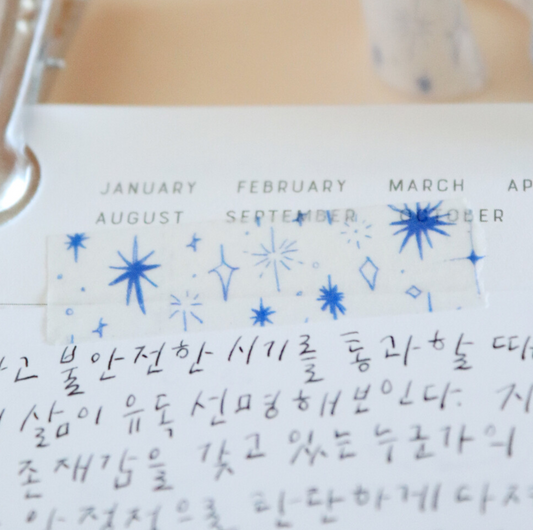 JANUARY FEBRUARY MARCH AP
AUGUST SEPTEMBER OCTOBER
고 불안전한 시기를 통과할 때
삶이 유독 선명해보인다. 지
존재감을 갖고 있는 누군가의
안정적으로 단단하게 다져